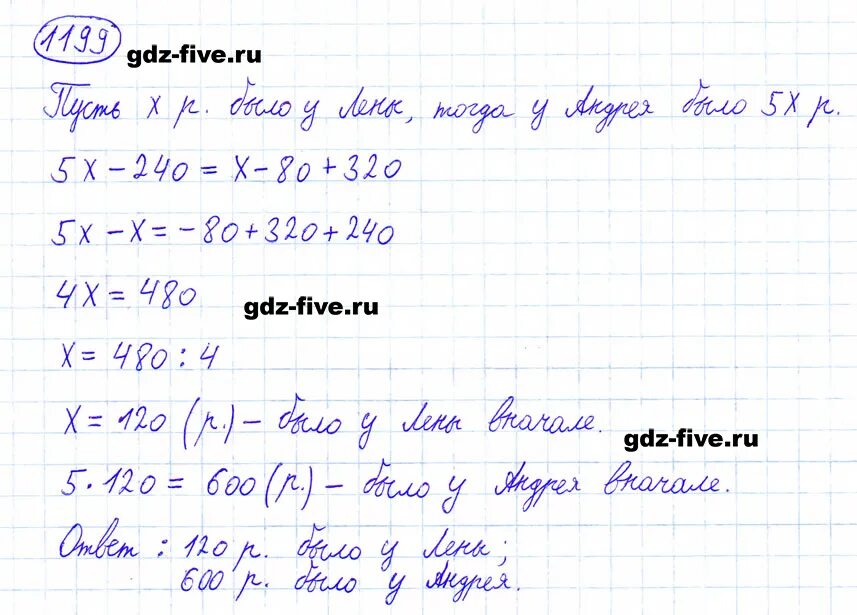 1199
gdz-five.ru
Пусть х р. было у Лены, тогда у Андрея было 5х р.
5х - 240 = х - 80 + 320
5х - х = - 80 + 320 + 240
4х = 480
gdz-five.ru
х = 480 : 4
х = 120 (р.) - было у Лены вначале.
gdz-five.ru
5 · 120 = 600 (р.) - было у Андрея вначале.
Ответ : 120 р. было у Лены;
600 р. было у Андрея.